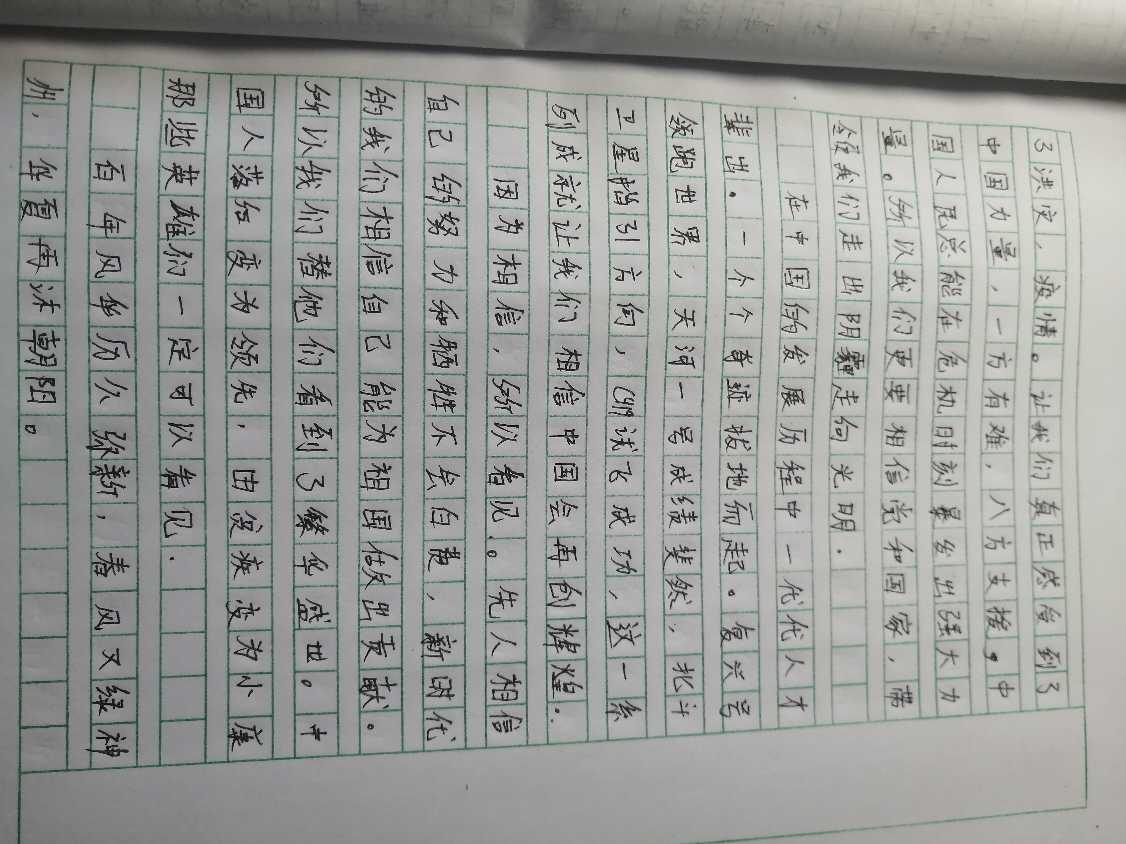 了洪灾、疫情。让我们真正感受到了
中国力量，一方有难，八方支援。中
国人民总能在危机时刻暴发出强大力
量。所以我们更要相信党和国家，带
领我们走出阴霾走向光明.
在中国的发展历程中一代代人才
辈出.一个个奇迹拔地而起。复兴号
领跑世界，天河一号成绩斐然，北斗
卫星指引方向，C919试飞成功，这一系
列成就让我们相信中国会再创辉煌.
因为相信，所以看见.。先人相信
自己的努力和牺牲不会白费，新时代
的我们相信自己能为祖国做出贡献。
所以我们替他们看到了繁华盛世。中
国人落红变为领先，由疫疾变为小康
那些英雄们一定可以看见.
百年风华历久弥新，春风又绿神
州，华夏再沐朝阳。